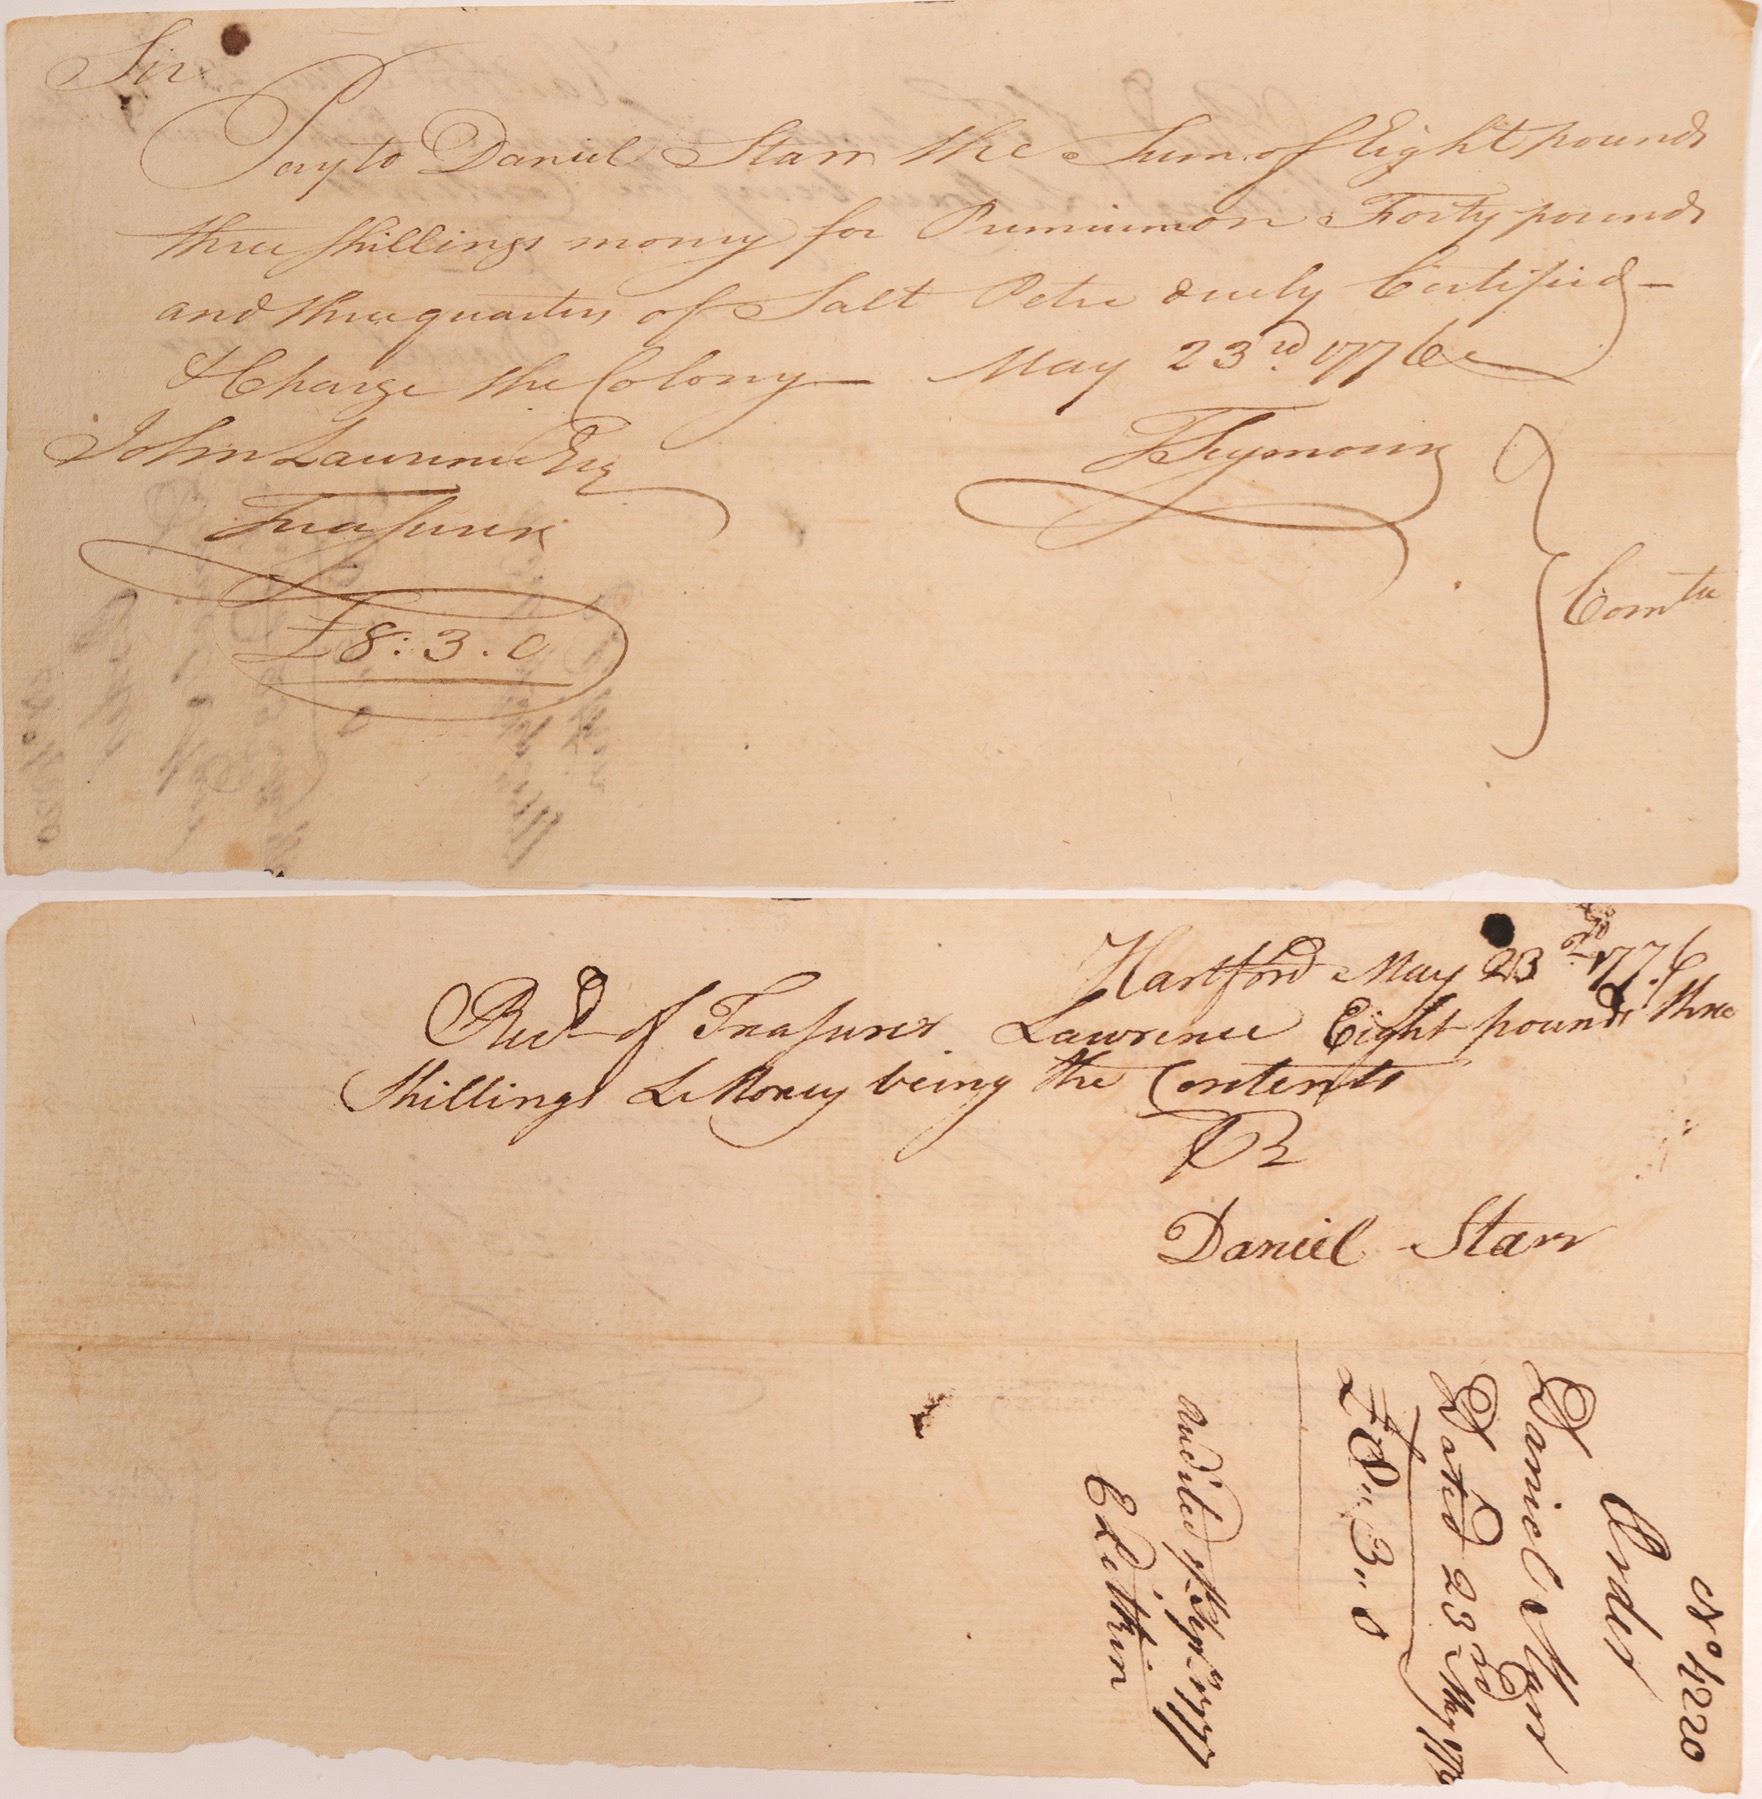 Sir
Pay to Daniel Starr the Sum of Eight pounds
three shillings money for Premium on Forty pounds
and three quarters of Salt Petre duely Certified –
& Charge the Colony – May 23rd. 1776
John Lawrence Esq
Treasurer
£8:3.0
TSeymour
Comtee
Hartford May 23rd 1776
Recd of Treasurer Lawrence Eight pounds three
Shillings L Money being the Contents
Pr
Daniel Starr
No 4220
Order
Daniel Starr
Dated 23rd May 1776
£8"3"0
Audited Sept. 1777